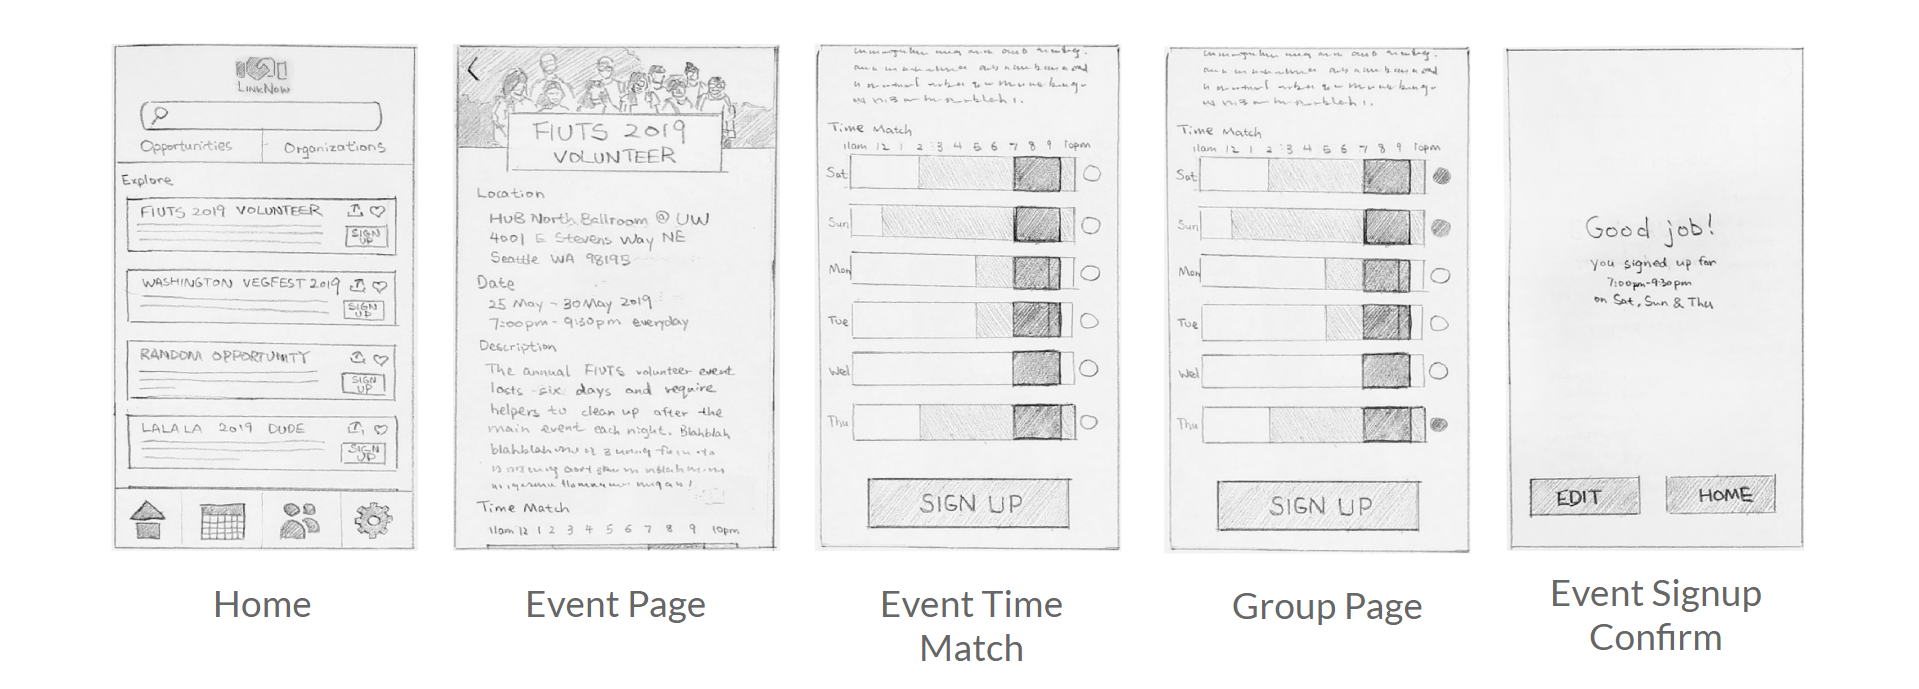 LinkNow
Opportunities
Organizations
Explore
FIUTS 2019 VOLUNTEER
SIGN UP
WASHINGTON VEGFEST 2019
SIGN UP
RANDOM OPPORTUNITY
SIGN UP
LALALA 2019 DUDE
SIGN UP
Home
FIUTS 2019
VOLUNTEER
Location
HUB North Ballroom @ UW
4001 E Stevens Way NE
Seattle WA 98195
Date
25 May - 30 May 2019
7:00pm - 9:30pm everyday
Description
The annual FIUTS volunteer event
lasts six days and require
helpers to clean up after the
main event each night. Blahblah
Time Match
11am 12 1 2 3 4 5 6 7 8 9 10pm
Event Page
Time Match
11am 12 1 2 3 4 5 6 7 8 9 10pm
Sat
Sun
Mon
Tue
Wed
Thu
SIGN UP
Event Time
Match
Time Match
11am 12 1 2 3 4 5 6 7 8 9 10pm
Sat
Sun
Mon
Tue
Wed
Thu
SIGN UP
Group Page
Good job!
you signed up for
7:00pm-9:30pm
on Sat, Sun & Thu
EDIT
HOME
Event Signup
Confirm